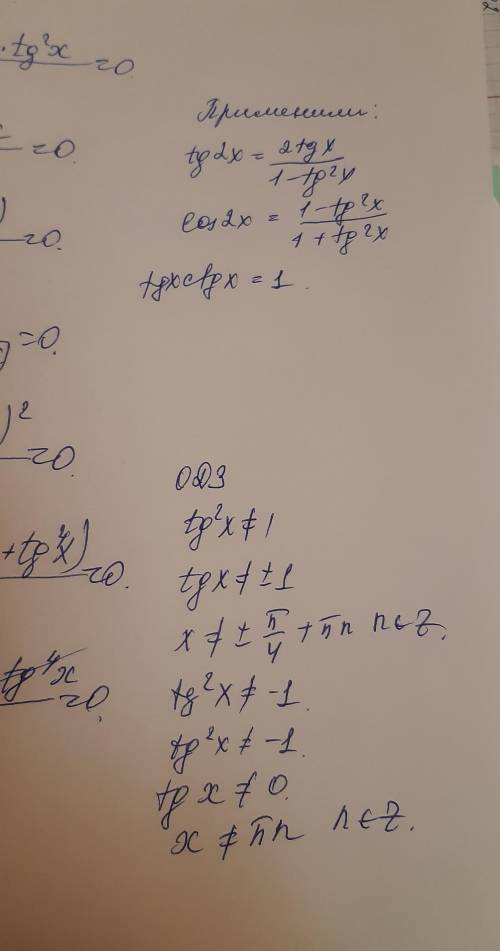 · tg²x
=0.
=0.
)
=0.
=0.
)²
=0.
+ tg²x)
=0.
tg⁴x
=0.
Применили:
tg2x = 2tgx / 1-tg²x
cos2x = 1-tg²x / 1+tg²x
tgxctgx = 1.
ОДЗ
tg²x ≠ 1
tgx ≠ ±1
x ≠ ± π/4 + πn n∈Z.
tg²x ≠ -1.
tg²x ≠ -1.
tg x ≠ 0.
x ≠ πn n∈Z.